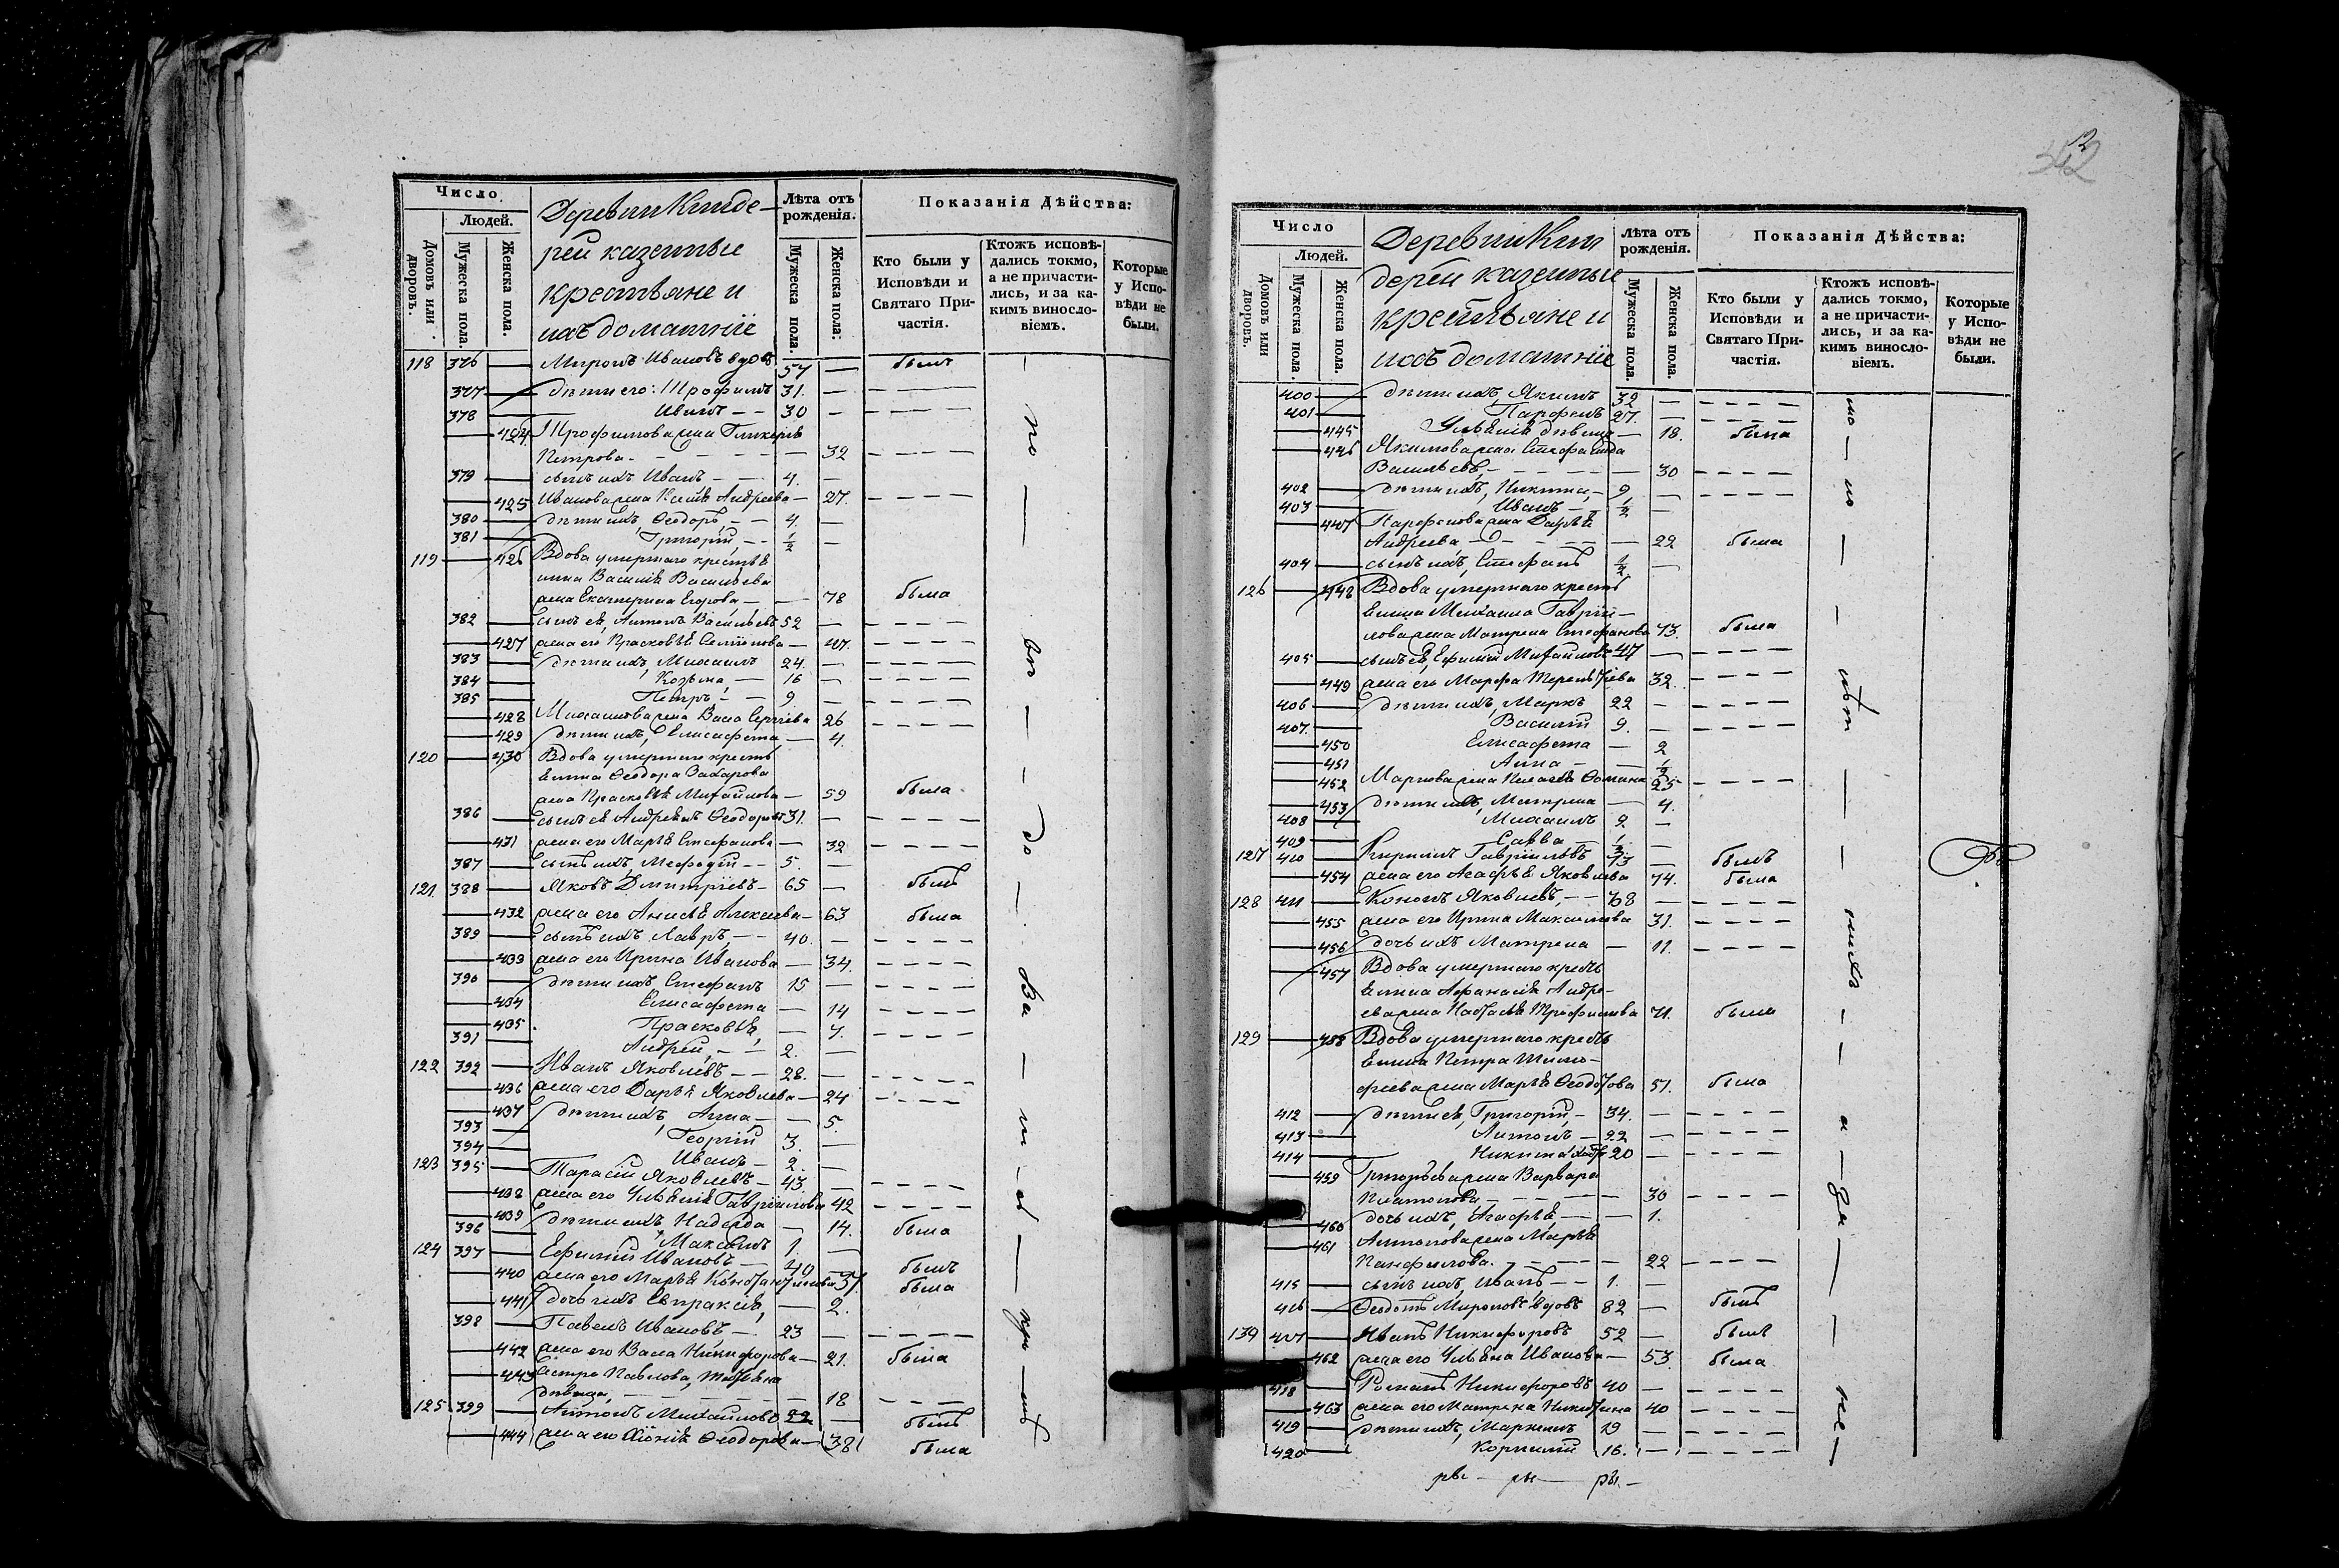 Число
Людей.
Домовъ или дворовъ.
Мужеска пола.
Женска пола.
Деревни Кинде-
рей казенные
крестьяне и
ихъ домашніе
Лѣта отъ рожденія.
Мужеска пола.
Женска пола:
Показанія Дѣйства:
Кто были у Исповѣди и Святаго Причастія.
Ктожъ исповѣдались токмо, а не причастились, и за какимъ винословіемъ.
Которые у Исповѣди не были.
118 376 Миронъ Ивановъ вдовъ 57 — былъ
377 дѣти его: Трофимъ 31. —
378 Иванъ 30 —
424 Трофимова жена Гликерія
Петрова 32
379 сынъ ихъ Иванъ 4. —
425 Иванова жена Ксенія Андреева 27.
380 дѣти ихъ, Ѳеодоръ, 4. —
381 Григорій, 1/2 —
119 426 Вдова умершаго крестья
нина Василія Васильева
жена Екатерина Егорова 78 была
382 сынъ ея, Антонъ Васильевъ 52 —
427 жена его Прасковья Семіонова 47.
383 дѣти ихъ, Михаилъ 24. —
384 Козьма, 16 —
385 Петръ, 9. —
428 Михайлова жена Васса Сергіева 26
429 дочь ихъ, Елисафета 4.
120 430 Вдова умершаго кресть
янина Ѳеодора Захарова
жена Прасковья Михайлова 59 была
386 сынъ ея Андрей Ѳеодоровъ 31. —
431 жена его Марья Стефанова 32
387 сынъ ихъ, Мефодій 5. —
121. 388 Яковъ Дмитріевъ 65 — былъ
432 жена его Анисья Алексѣева 63 была
389 сынъ ихъ Лавръ, 40. —
433 жена его Ирина Иванова 34.
390 дѣти ихъ Стефанъ 15 —
434 Елисафета 14
435 Прасковья, 7.
391 Андрей, 2. —
122 392 Иванъ Яковлевъ 28. —
436 жена его Дарья Яковлева 24
437 дѣти ихъ, Анна, 5.
393 Георгій 3. —
394 Иванъ 2. —
123 395 Тарасій Яковлевъ 43. —
438 жена его Ульянія Гавріилова 42
439 дѣти ихъ Надежда 14. была
396 Максимъ 1. —
124 397 Ефимій Ивановъ 40 — былъ
440 жена его Марья Константинова 37. была
441 дочь ихъ Евпраксія, 2.
398 Павелъ Ивановъ 23 —
442 жена его Васса Никифорова 21. была
443 Сестра Павлова, Татьяна
дѣвица, 18
125 399 Антонъ Михайловъ 52 — былъ
444 жена его Хіонія Ѳеодорова 38 была
по — въ — до — ва — ни — ю — кре — щѣ
Число
Людей.
Домовъ или дворовъ.
Мужеска пола.
Женска пола.
Деревни Кин
дерей казенные
крестьяне и
ихъ домашніе
Лѣта отъ рожденія.
Мужеска пола.
Женска пола.
Показанія Дѣйства:
Кто были у Исповѣди и Святаго Причастія.
Ктожъ исповѣдались токмо, а не причастились, и за какимъ винословіемъ.
Которые у Исповѣди не были.
400 дѣти ихъ, Якимъ 32 —
401 Парфенъ 27. —
445 Ульянія дѣвица 18. была
446 Якимова жена Стефанида
Васильева, 30
402 дѣти ихъ, Никита, 9 —
403 Иванъ 1/2 —
447 Парфенова жена Дарья
Андреева 22 была
404 сынъ ихъ, Стефанъ 1/2 —
126 448 Вдова умершаго кресть
янина Михаила Гавріи-
лова жена Матрена Стефанова 73. была
405 сынъ ея, Ефимій Михайловъ 47 —
449 жена его Марфа Терентьева 32.
406 дѣти ихъ, Маркъ 22 —
407. Василій 9. —
450 Елисафета 2
451 Анна 1/2
452 Маркова жена Пелагея Ѳомина 25
453 дѣти ихъ, Матрена 4.
408 Михаилъ 2 —
409 Савва —
127 410 Кириллъ Гавріиловъ 73 — былъ
454 жена его Агафья Яковлева 74. была
128 411 Кононъ Яковлевъ, 38 —
455 жена его Ирина Максимова 31.
456 дочь ихъ Матрена 11.
457 Вдова умершаго кресть
янина Афанасія Андре-
ева жена Настасья Трофимова 71. была
129 458 Вдова умершаго кресть
янина Петра Тимо-
феева жена Марья Ѳеодотова 57. была
412 дѣти ея, Григорій, 34. —
413 Антонъ 22 —
414 Никита 20 —
459 Григорьева жена Варвара
Платонова 30
460 дочь ихъ, Агафья, 1.
461 Антонова жена Марья
Панфилова. 22
415 сынъ ихъ, Иванъ 1. —
416 Ѳеодотъ Мироновъ вдовъ 82 — былъ
130 417 Иванъ Никифоровъ 52 — былъ
462 жена его Ульяна Иванова 53. была
418 Романъ Никифоровъ 40 —
463 жена его Матрена Никитина 40
419 дѣти ихъ, Маркеллъ 19 —
420 Корнилій 16. —